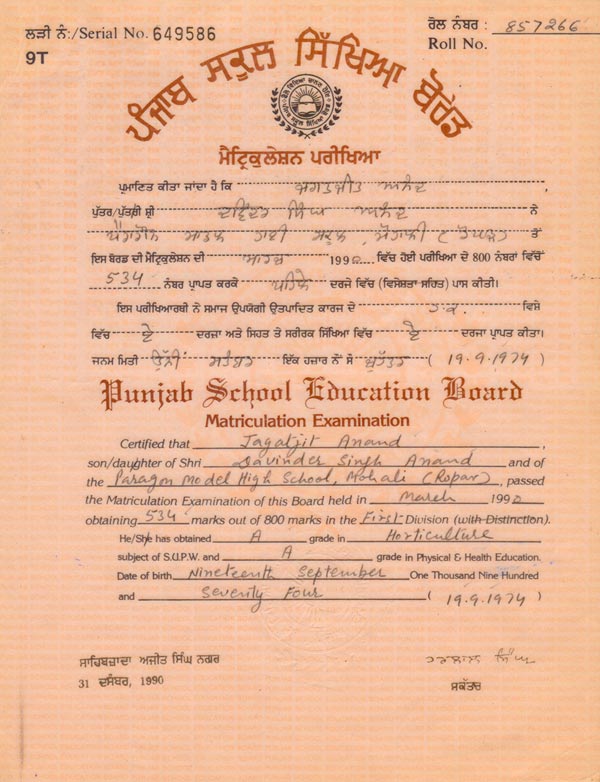 ਲੜੀ ਨੰ:/Serial No. 649586
9T
ਰੋਲ ਨੰਬਰ : 857266
Roll No.
ਪੰਜਾਬ ਸਕੂਲ ਸਿੱਖਿਆ ਬੋਰਡ
ਮੈਟ੍ਰਿਕੁਲੇਸ਼ਨ ਪਰੀਖਿਆ
ਪ੍ਰਮਾਣਿਤ ਕੀਤਾ ਜਾਂਦਾ ਹੈ ਕਿ ਜਗਤਜੀਤ ਅਨੰਦ
ਪੁੱਤਰ/ਪੁੱਤਰੀ ਸ਼੍ਰੀ ਦਵਿੰਦਰ ਸਿੰਘ ਅਨੰਦ ਨੇ
ਪੈਰਾਗੋਨ ਮਾਡਲ ਹਾਈ ਸਕੂਲ, ਮੋਹਾਲੀ (ਰੋਪੜ) ਤੋਂ
ਇਸ ਬੋਰਡ ਦੀ ਮੈਟ੍ਰਿਕੁਲੇਸ਼ਨ ਦੀ ਮਾਰਚ 1990 ਵਿੱਚ ਹੋਈ ਪਰੀਖਿਆ ਦੇ 800 ਨੰਬਰਾਂ ਵਿੱਚੋਂ
534 ਨੰਬਰ ਪ੍ਰਾਪਤ ਕਰਕੇ ਪਹਿਲੇ ਦਰਜੇ ਵਿੱਚ (ਵਿਸ਼ੇਸ਼ਤਾ ਸਹਿਤ) ਪਾਸ ਕੀਤੀ।
ਇਸ ਪਰੀਖਿਆਰਥੀ ਨੇ ਸਮਾਜ ਉਪਯੋਗੀ ਉਤਪਾਦਿਤ ਕਾਰਜ ਦੇ ਵਿਸ਼ੇ
ਵਿੱਚ ਏ ਦਰਜਾ ਅਤੇ ਸਿਹਤ ਤੇ ਸਰੀਰਕ ਸਿੱਖਿਆ ਵਿੱਚ ਏ ਦਰਜਾ ਪ੍ਰਾਪਤ ਕੀਤਾ।
ਜਨਮ ਮਿਤੀ ਉੱਨੀ ਸਤੰਬਰ ਇੱਕ ਹਜ਼ਾਰ ਨੌਂ ਸੌ ਚੁਹੱਤਰ ( 19.9.1974 )
Punjab School Education Board
Matriculation Examination
Certified that Jagatjit Anand
son/daughter of Shri Davinder Singh Anand and of
the Paragon Model High School, Mohali (Ropar), passed
the Matriculation Examination of this Board held in March 1990
obtaining 534 marks out of 800 marks in the First Division (with Distinction).
He/She has obtained A grade in Horticulture
subject of S.U.P.W. and A grade in Physical & Health Education.
Date of birth Nineteenth September One Thousand Nine Hundred
and Seventy Four ( 19.9.1974 )
ਸਾਹਿਬਜ਼ਾਦਾ ਅਜੀਤ ਸਿੰਘ ਨਗਰ
31 ਦਸੰਬਰ, 1990
ਹਰਲਾਲ ਸਿੰਘ
ਸਕੱਤਰ